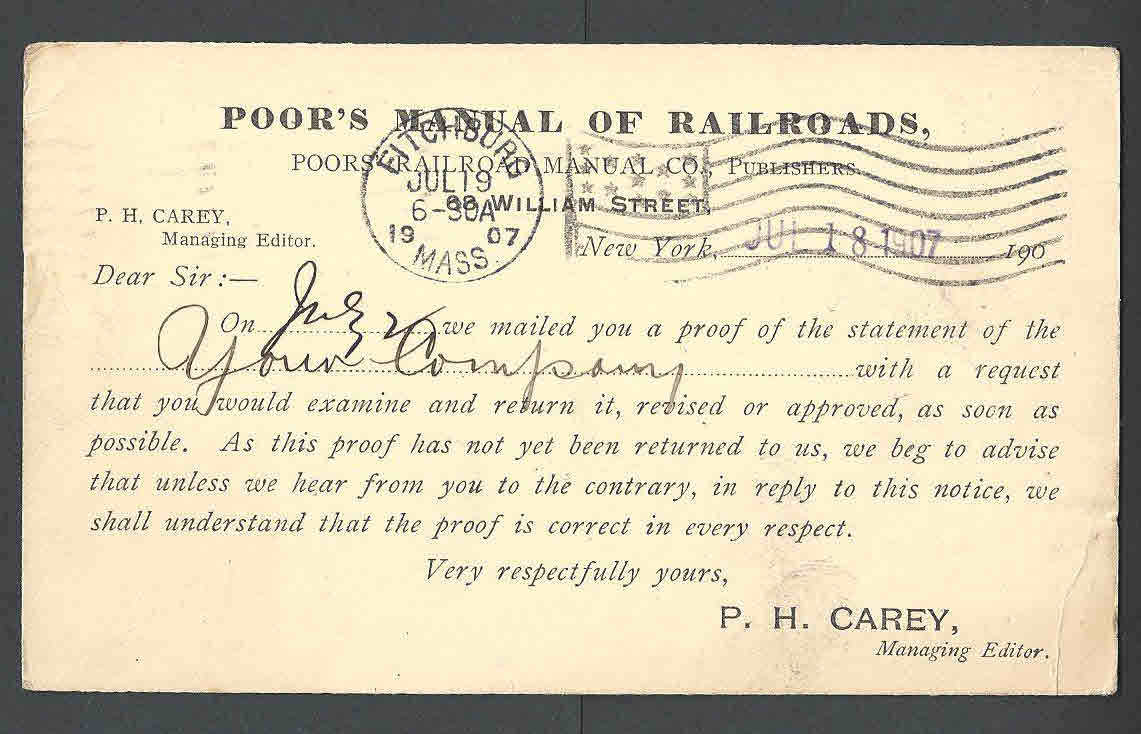 POOR'S MANUAL OF RAILROADS,
POORS' RAILROAD MANUAL CO., PUBLISHERS.
68 WILLIAM STREET,
FITCHBURG
JUL 19
6-30A
19 07
MASS.
P. H. CAREY,
Managing Editor.
New York, JUL 18 1907 190
Dear Sir:—
On July 2 we mailed you a proof of the statement of the
Your Company with a request
that you would examine and return it, revised or approved, as soon as
possible. As this proof has not yet been returned to us, we beg to advise
that unless we hear from you to the contrary, in reply to this notice, we
shall understand that the proof is correct in every respect.
Very respectfully yours,
P. H. CAREY,
Managing Editor.